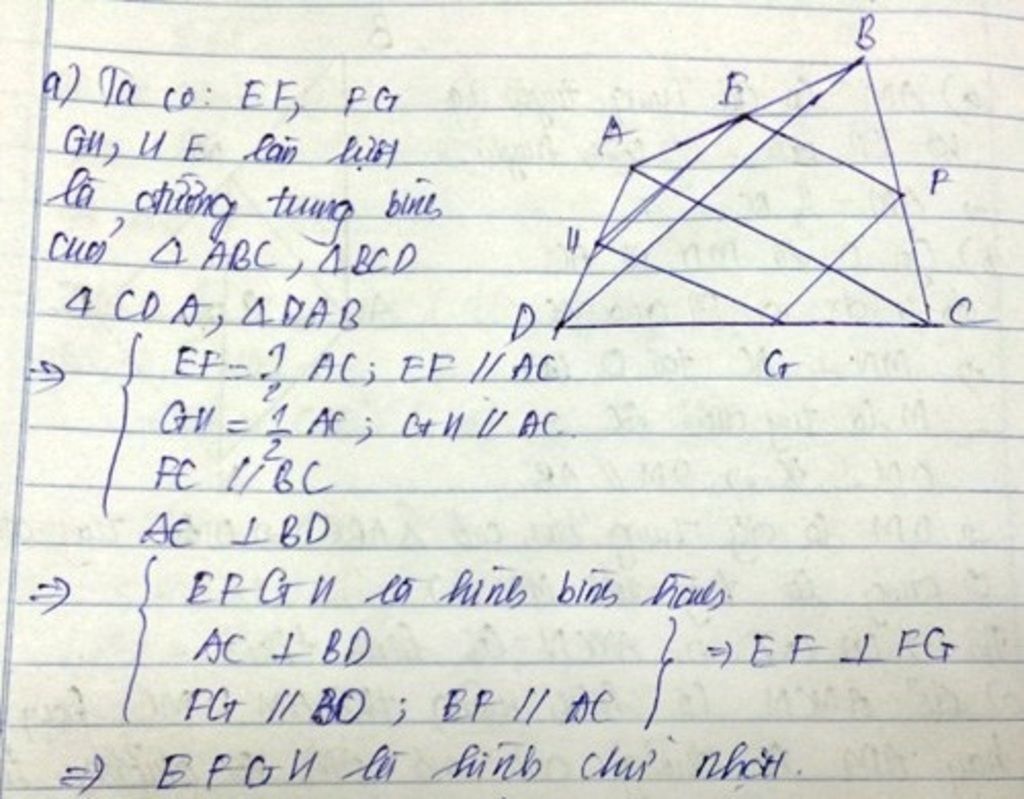 a) Ta có: EF, FG
GH, HE lần lượt
là đường trung bình
của ΔABC, ΔBCD
ΔCDA, ΔDAB
=> { EF = 1/2 AC; EF // AC
GH = 1/2 AC; GH // AC.
FC // BC
AC ⊥ BD
=> { EFGH là hình bình hành.
AC ⊥ BD
FG // BD; EF // AC } => EF ⊥ FG
=> EFGH là hình chữ nhật.
B
E
A
F
H
D
C
G